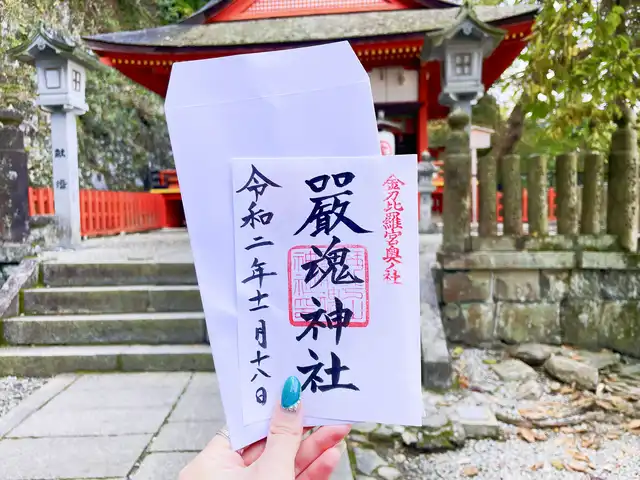 金刀比羅宮奥ノ社
嚴魂神社
令和二年十一月十八日
献燈